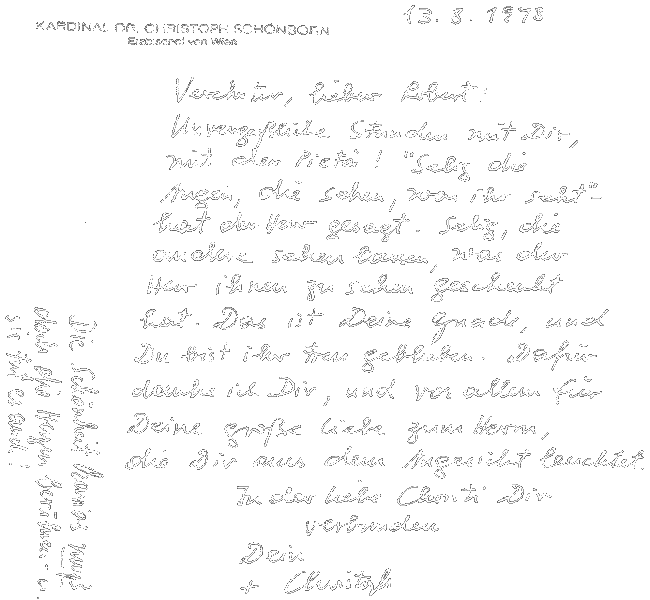 KARDINAL DR. CHRISTOPH SCHÖNBORN
Erzbischof von Wien
13. 3. 1998
Verehrter, lieber Robert!
Unvergeßliche Stunden mit Dir,
mit der Pietà! "Selig die
Augen, die sehen, was ihr seht"-
hat der Herr gesagt. Selig, die
andere sehen lassen, was der
Herr ihnen zu sehen geschenkt
hat. Das ist Deine Gnade, und
Du bist ihr treu geblieben. Dafür
danke ich Dir, und vor allem für
Deine große Liebe zum Herrn,
die Dir aus dem Angesicht leuchtet.
In der Liebe Christi Dir
verbunden
Dein
+ Christoph
Die Schönheit Mariens muß
doch die Augen berühren - u.
sie tut es auch!